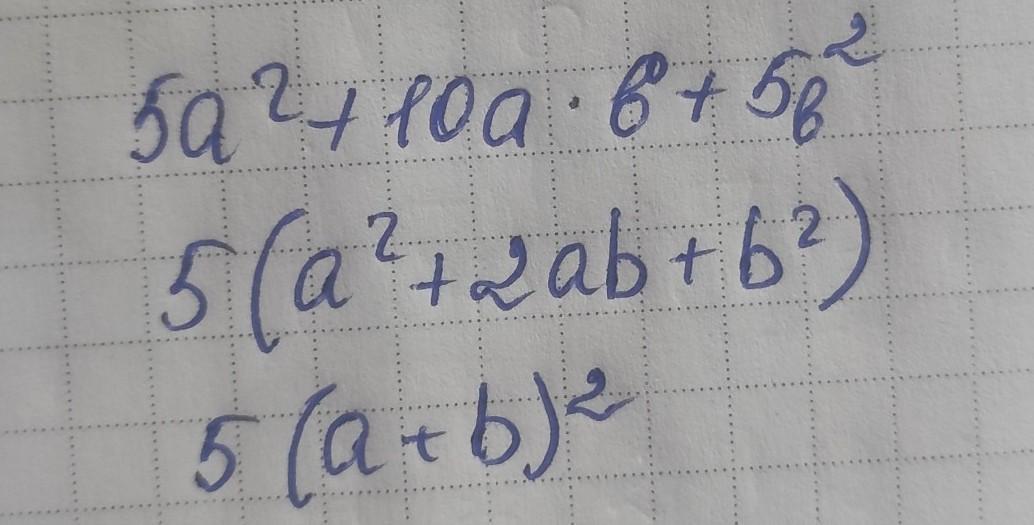 5a² + 10a · b + 5b²
5(a² + 2ab + b²)
5(a + b)²